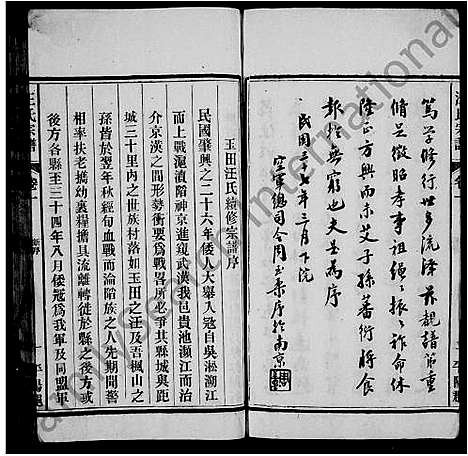 篤学修行世多流泽兹觀譜葺重
脩足徵昭孝事祖繩繩振振祚命休
隆正方興而未艾子孫蕃衍將食
報於無窮也夫是為序
民國三十七年三月下浣
空軍總司令周至柔序於南京
汪氏宗譜
卷一
玉田汪氏續修宗譜序
民國肇興之二十六年倭人大舉入寇自吳淞溯江
而上戰滬滇陷神京進窺武漢我同邑貴池瀕江而治
介京漢之間形勢衝要為戰畧所必爭其縣城與距
城三十里內之世族村落如玉田之汪及吾楓山之
孫皆於翌年秋經旬血戰而淪陷族之人先期聞警
相率扶老攜幼裹糧擔具流離轉徙於縣之後方或
後方各縣至三十四年八月倭寇為我軍及同盟軍